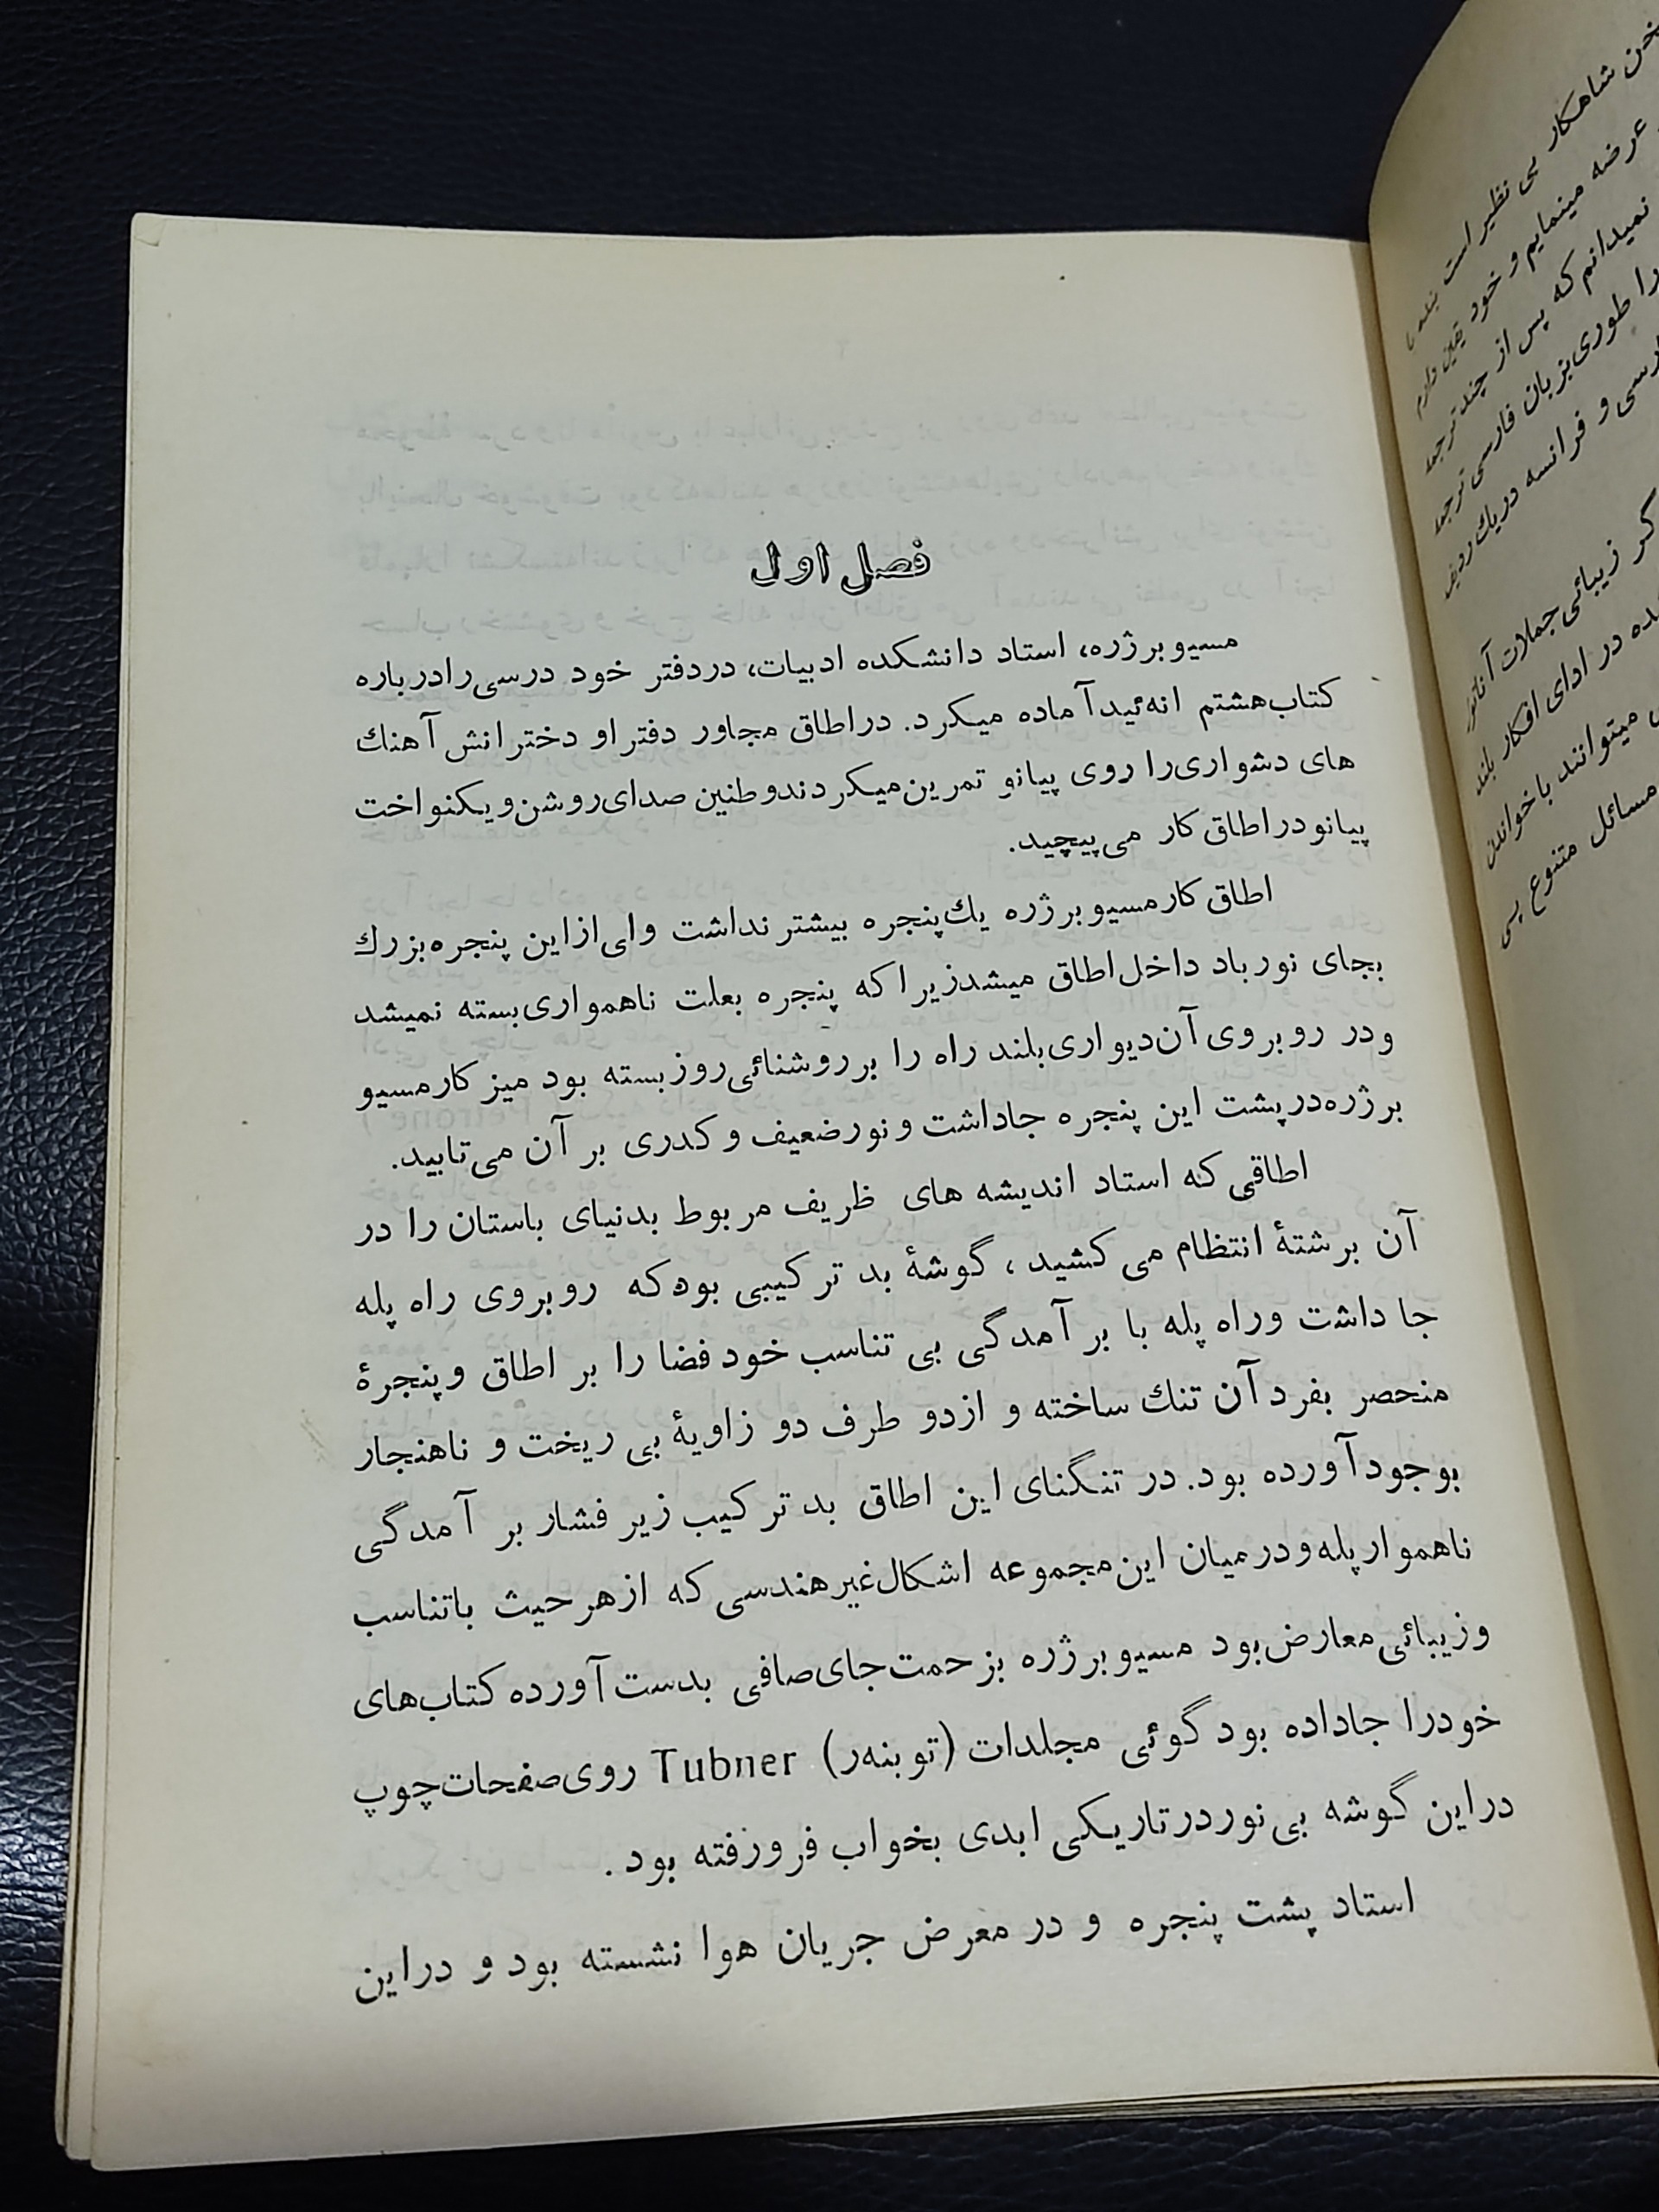 فصل اول
مسیو برژره، استاد دانشکده ادبیات، در دفتر خود درسی را درباره
کتاب هشتم انه‌ئید آماده میکرد. در اطاق مجاور دفتر او دخترانش آهنك
های دشواری را روی پیانو تمرین میکردند و طنین صدای روشن و یکنواخت
پیانو در اطاق کار می‌پیچید.
اطاق کار مسیو برژره یك پنجره بیشتر نداشت ولی از این پنجره بزرك
بجای نور باد داخل اطاق میشد زیرا که پنجره بعلت ناهمواری بسته نمیشد
و در روبروی آن دیواری بلند راه را بر روشنائی روز بسته بود میز کار مسیو
برژره در پشت این پنجره جا داشت و نور ضعیف و کدری بر آن می‌تابید.
اطاقی که استاد اندیشه های ظریف مربوط بدنیای باستان را در
آن برشتۀ انتظام می کشید ، گوشۀ بد ترکیبی بود که روبروی راه پله
جا داشت وراه پله با بر آمدگی بی تناسب خود فضا را بر اطاق و پنجرۀ
منحصر بفرد آن تنك ساخته و از دو طرف دو زاویۀ بی ریخت و ناهنجار
بوجود آورده بود. در تنگنای این اطاق بد ترکیب زیر فشار بر آمدگی
ناهموار پله و در میان این مجموعه اشکال غیر هندسی که از هر حیث با تناسب
و زیبائی معارض بود مسیو برژره بزحمت جای صافی بدست آورده کتاب‌های
خود را جا داده بود گوئی مجلدات (توبنه‌ر) Tubner روی صفحات چوپ
در این گوشه بی نور در تاریکی ابدی بخواب فرو رفته بود .
استاد پشت پنجره و در معرض جریان هوا نشسته بود و در این
خن شاهکار بی نظیر است
عرضه مینمایم و خود یقین دارم
نمیدانم که پس از چند ترجمه
را طوری بزبان فارسی ترجمه
رسی و فرانسه در یك ردیف
گر زیبائی جملات آناتور
ده در ادای افکار بلند
میتوانند با خواندن
مسائل متنوع بی